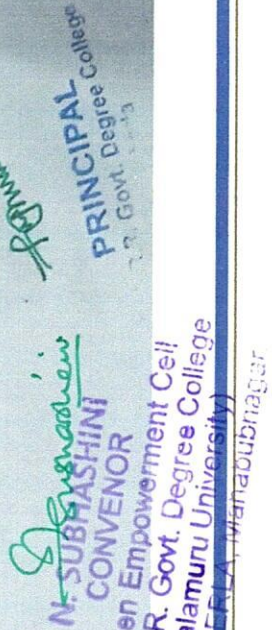 PRINCIPAL
Govt. Degree College
N. SUBHASHINI
CONVENOR
en Empowerment Cell
R. Govt. Degree College
lamuru University)
ERLA, Mahabubnagar